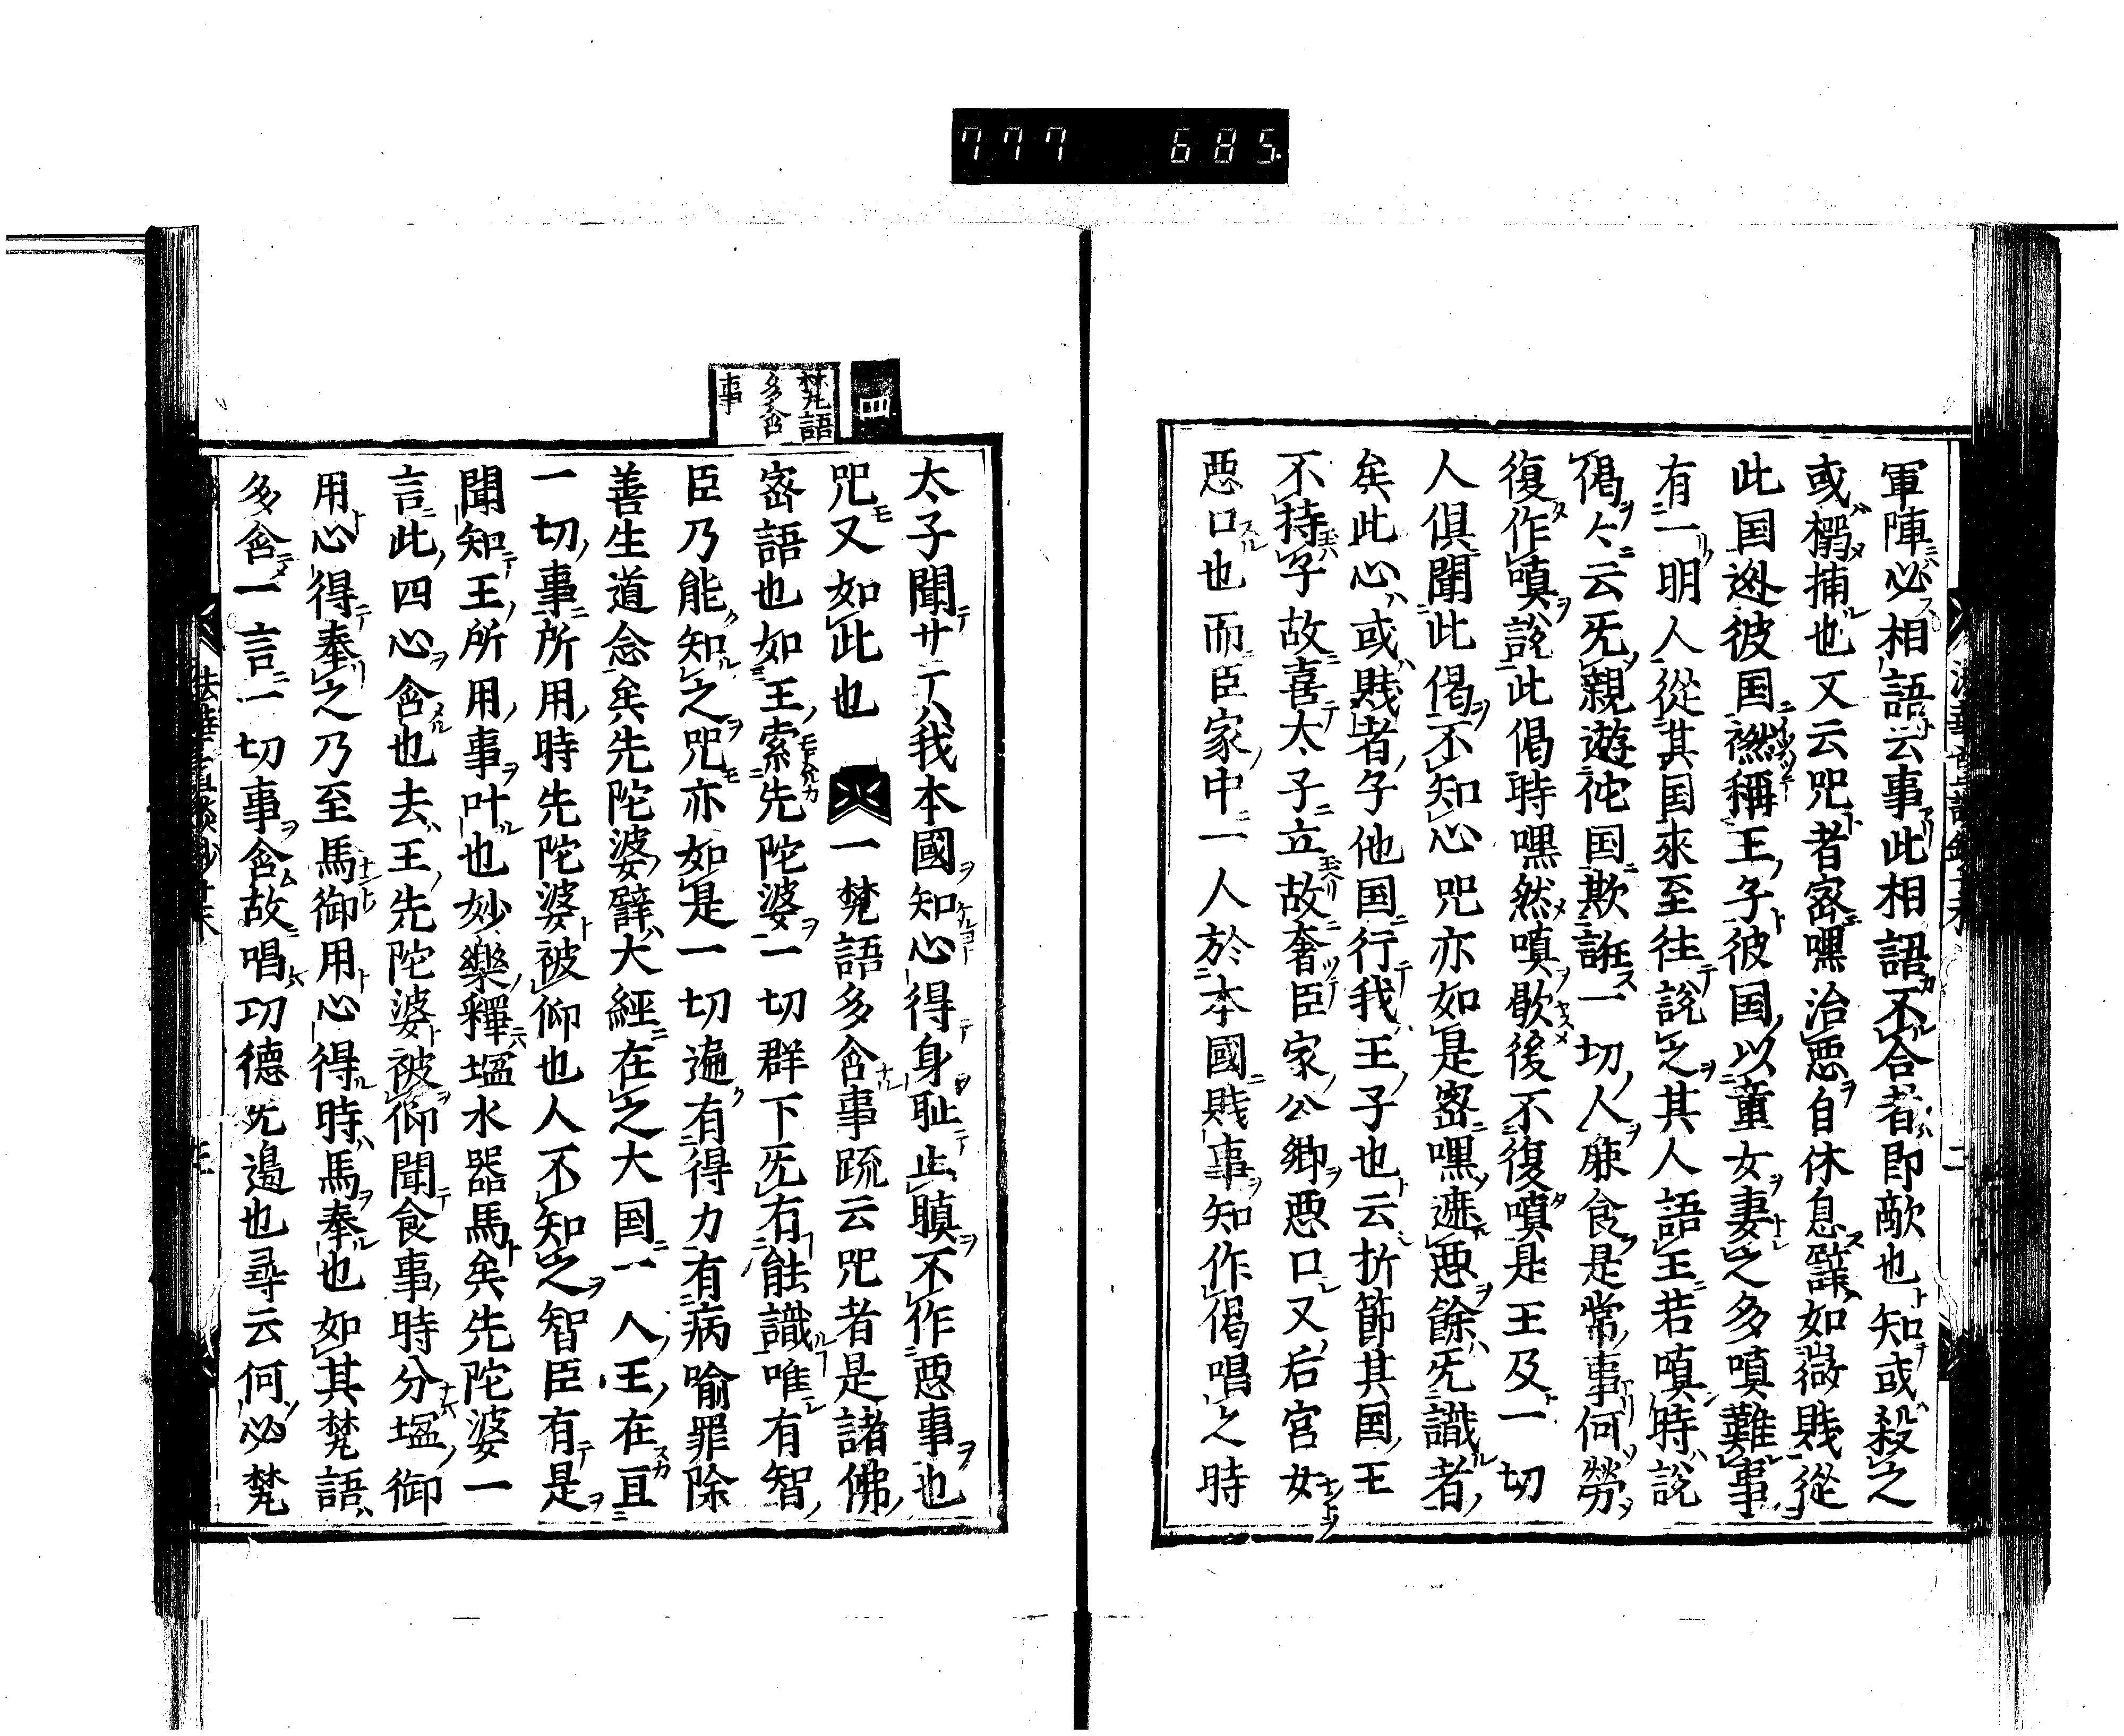 777 685
軍陣必相語云事此相語不合者即敵也知或殺之
或搦捕也又云咒者密嘿治惡自休息譬如微賤從
此国迯彼国襟稱王子彼国以童女妻之多嗔難事
有一明人從其国來至徃說之其人語王若嗔時說
偈々云旡親遊佗国欺誑一切人麁食是常事何勞
復作嗔說此偈時嘿然嗔歇後不復嗔是王及一切
人俱聞此偈不知心咒亦如是密嘿遮惡餘旡識者
矣此心或賤者子他国行我王子也云折節其国王
不持子故喜太子立故奢臣家公卿惡口又后宮女
惡口也而臣家中一人於本國賤事知作偈唱之時
四
梵語多含事
太子聞廿丁人我本國知心得身耻止瞋不作惡事也
咒又如此也 一梵語多含事疏云咒者是諸佛
密語也如王索先陀婆一切群下旡有能識唯有智
臣乃能知之咒亦如是一切遍有得力有病喻罪除
善生道念矣先陀婆譬大經在之大国一人王在亘
一切事所用時先陀婆被仰也人不知之智臣有是
聞知王所用事叶也妙樂釋塩水器馬矣先陀婆一
言此四心含也去王先陀婆被仰聞食事時分塩御
用心得奉之乃至馬御用心得時馬奉也如其梵語
多含一言一切事含故唱功德旡邉也尋云何必梵